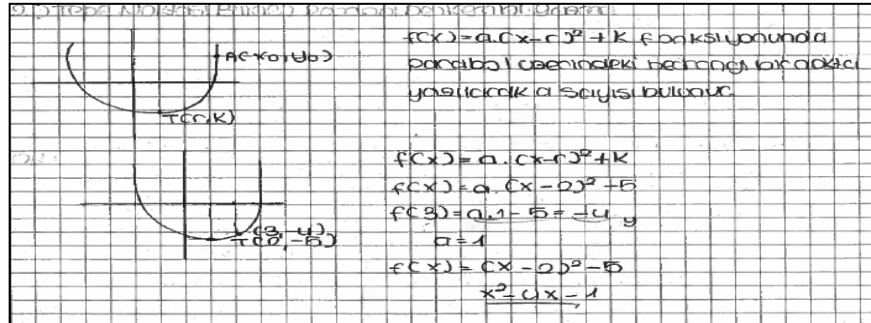 9.) Tepe Noktası Bilinen Parabol Denklemini Yazma
A(x₀, y₀)
T(r, k)
f(x) = a.(x-r)² + k fonksiyonunda
parabol üzerindeki herhangi bir nokta
yazılarak a sayısı bulunur.
(3, -4)
T(2, -5)
f(x) = a.(x-r)² + k
f(x) = a.(x-2)² - 5
f(3) = a.1 - 5 = -4 y
a = 1
f(x) = (x-2)² - 5
x² - 4x - 1